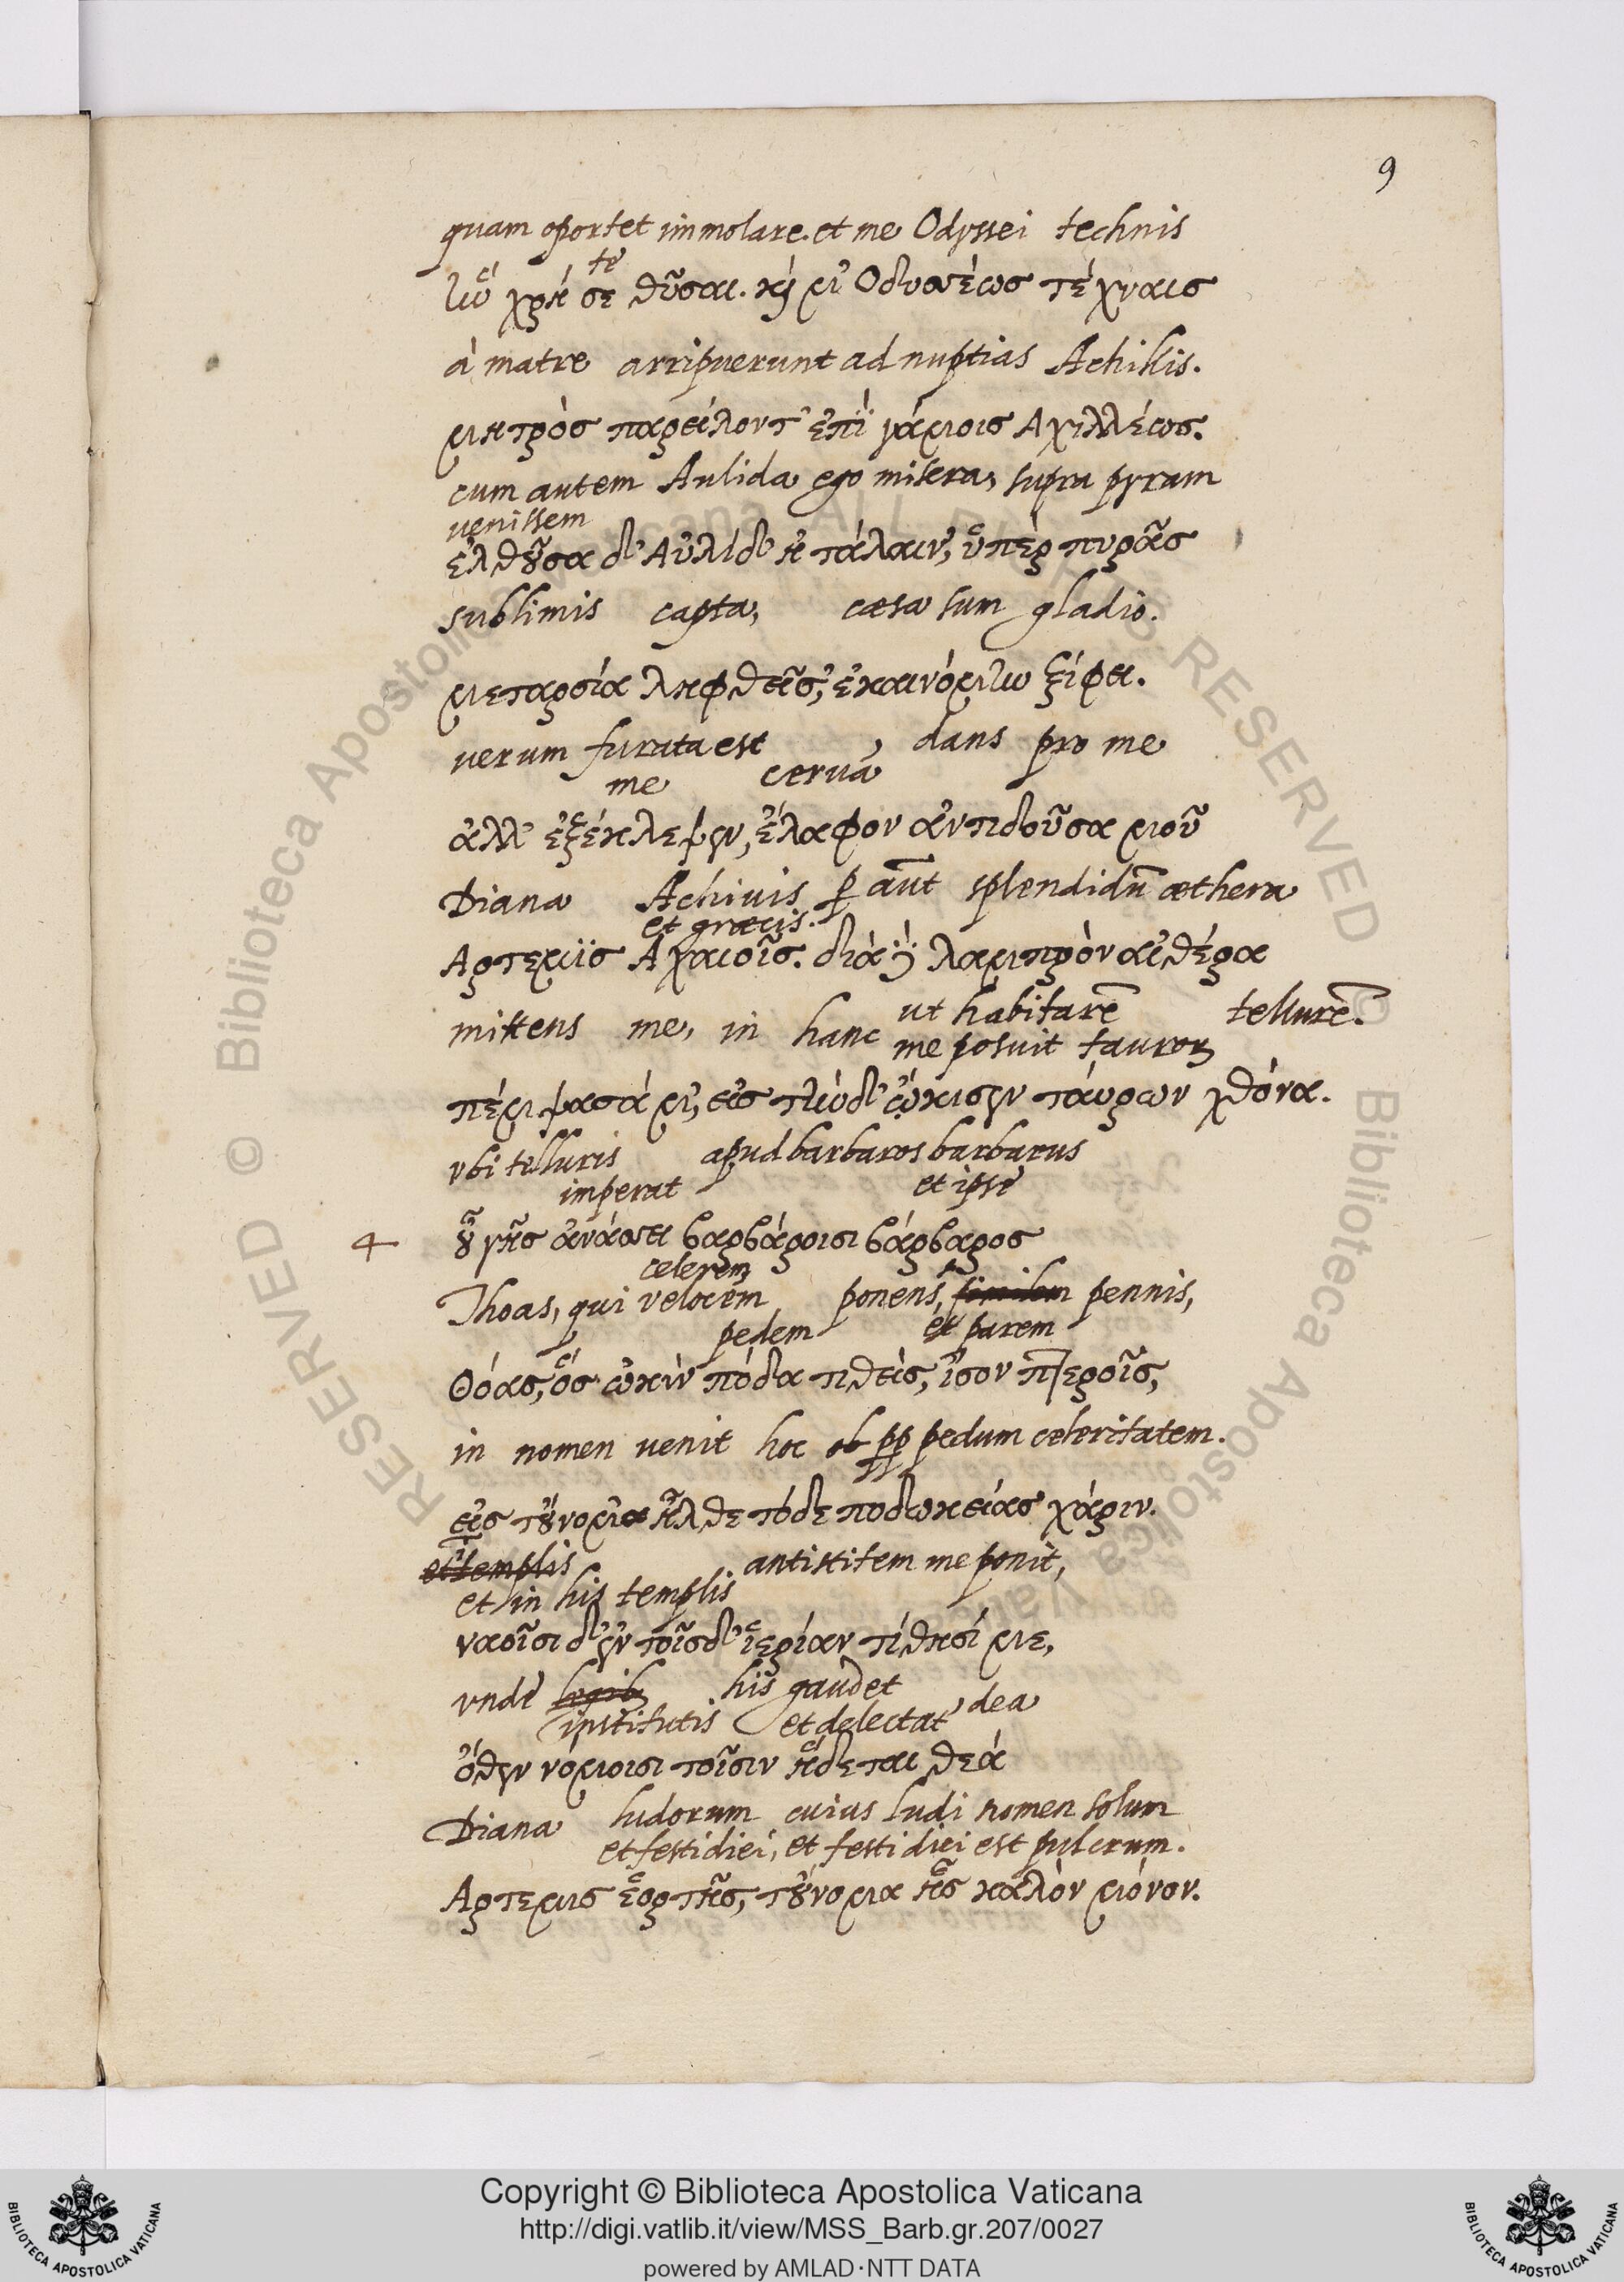 9
quam oportet immolare. et me Odyssei technis
te
ἣν χρή σε θῦσαι. καί μ' Οδυσσέως τέχναις
à matre arripuerunt ad nuptias Achillis.
μητρὸς παρείλοντ' ἐπὶ γάμοις Αχιλλέως.
cum autem Aulida ego misera, supra pyram
venissem
ἐλθοῦσα δ' Αὐλίδ' ἡ τάλαιν', ὑπὲρ πυρᾶς
sublimis capta, cæsa sum gladio.
μεταρσία ληφθεῖσ', ἐκαινόμην ξίφει.
verum furata est, dans pro me
me cervā
ἀλλ' ἐξέκλεψεν, ἔλαφον ἀντιδοῦσα μοῦ
Diana Achivis p aūt splendidū æthera
et græcis.
Αρτεμϊς Αχαιοῖς. διὰ δὲ λαμπρὸν αἰθέρα
mittens me, in hanc ut habitarē tellurē.
me posuit tauroꝝ
πέμψασά μ', εἰς τήνδ' ᾤκισεν τάυρων χθόνα.
vbi telluris apud barbaros barbarus
imperat et ipse
4 οὗ γῆς ἀνάσσει βαρβάροισι βάρβαρος
celerem
Thoas, qui velocem ponens, similem pennis,
pedem et parem
Θόας, ὅς ὠκὺν πόδα τιθεὶς, ἴσον πτεροῖς,
in nomen venit hoc ob pp pedum celeritatem.
εἰς τοὔνομ' ἦλθε τόδε ποδωκείας χάριν.
et templis antistitem me ponit,
et in his templis
ναοῖσι δ' ἐν τοῖσδ' ἱερίαν τίθησί με,
vnde legib his gaudet
institutis et delectat dea
ὅθεν νόμοισι τοῖσιν ἥδεται θεά
Diana ludorum cuius ludi nomen solum
et festi diei, et festi diei est pulcrum.
Αρτεμις ἑορτῆς, τοὔνομα ἧς καλὸν μόνον.
Copyright © Biblioteca Apostolica Vaticana
http://digi.vatlib.it/view/MSS_Barb.gr.207/0027
powered by AMLAD·NTT DATA